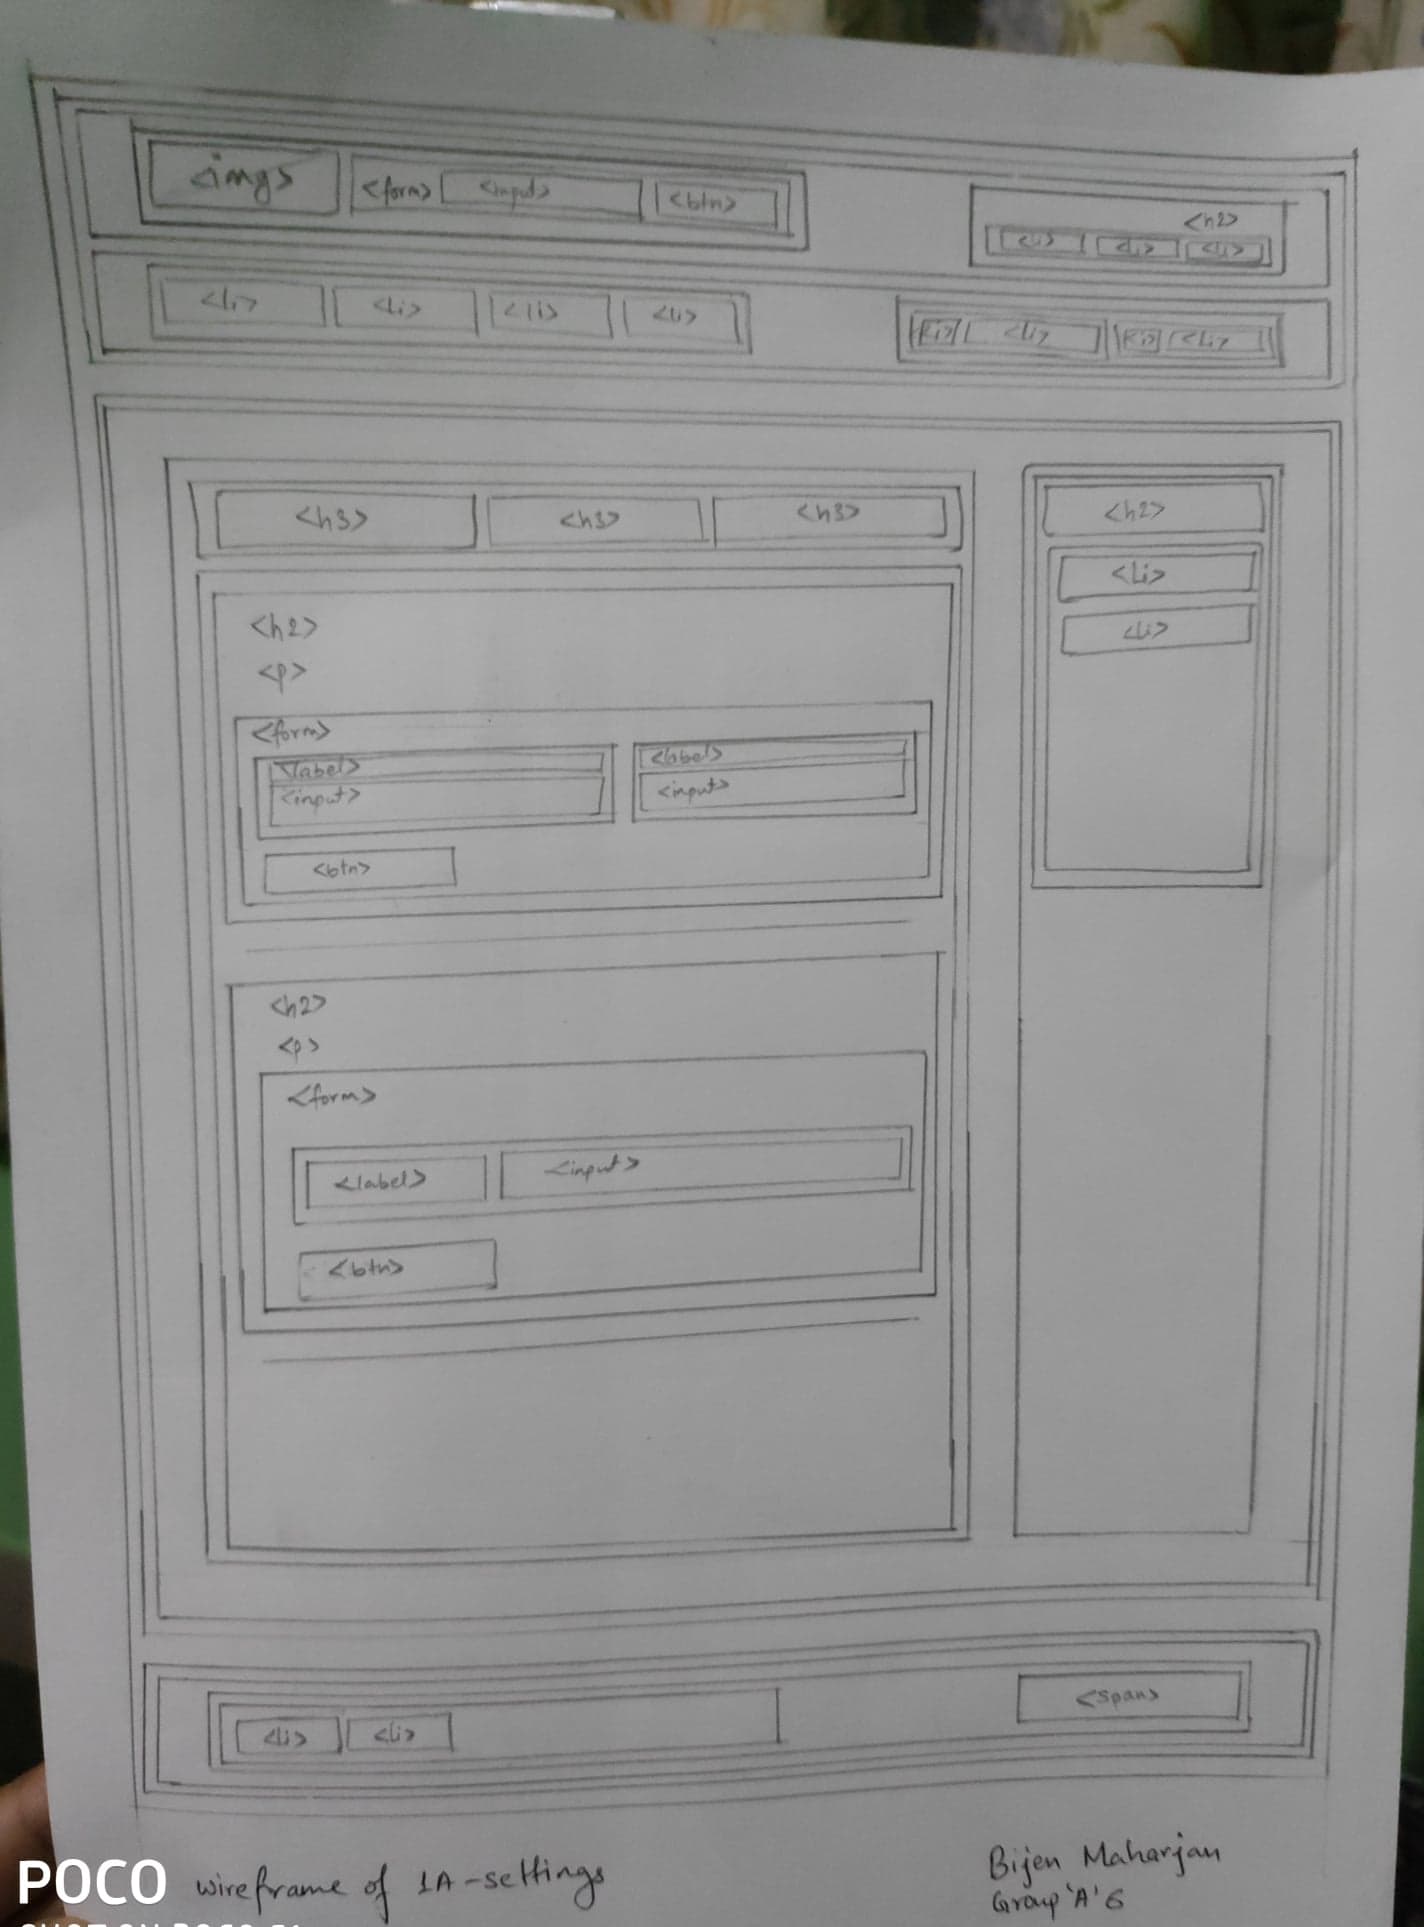 <img>
<form> <input> <btn>
<h2>
<li> <li> <li>
<li> <li> <li> <li>
<li> <li>
<h3> <h3> <h3>
<h2>
<p>
<form>
<label>
<input>
<label>
<input>
<btn>
<h2>
<p>
<form>
<label> <input>
<btn>
<h2>
<li>
<li>
<li> <li>
<span>
wireframe of 1A-settings
Bijen Maharjan
Group 'A' 6
POCO